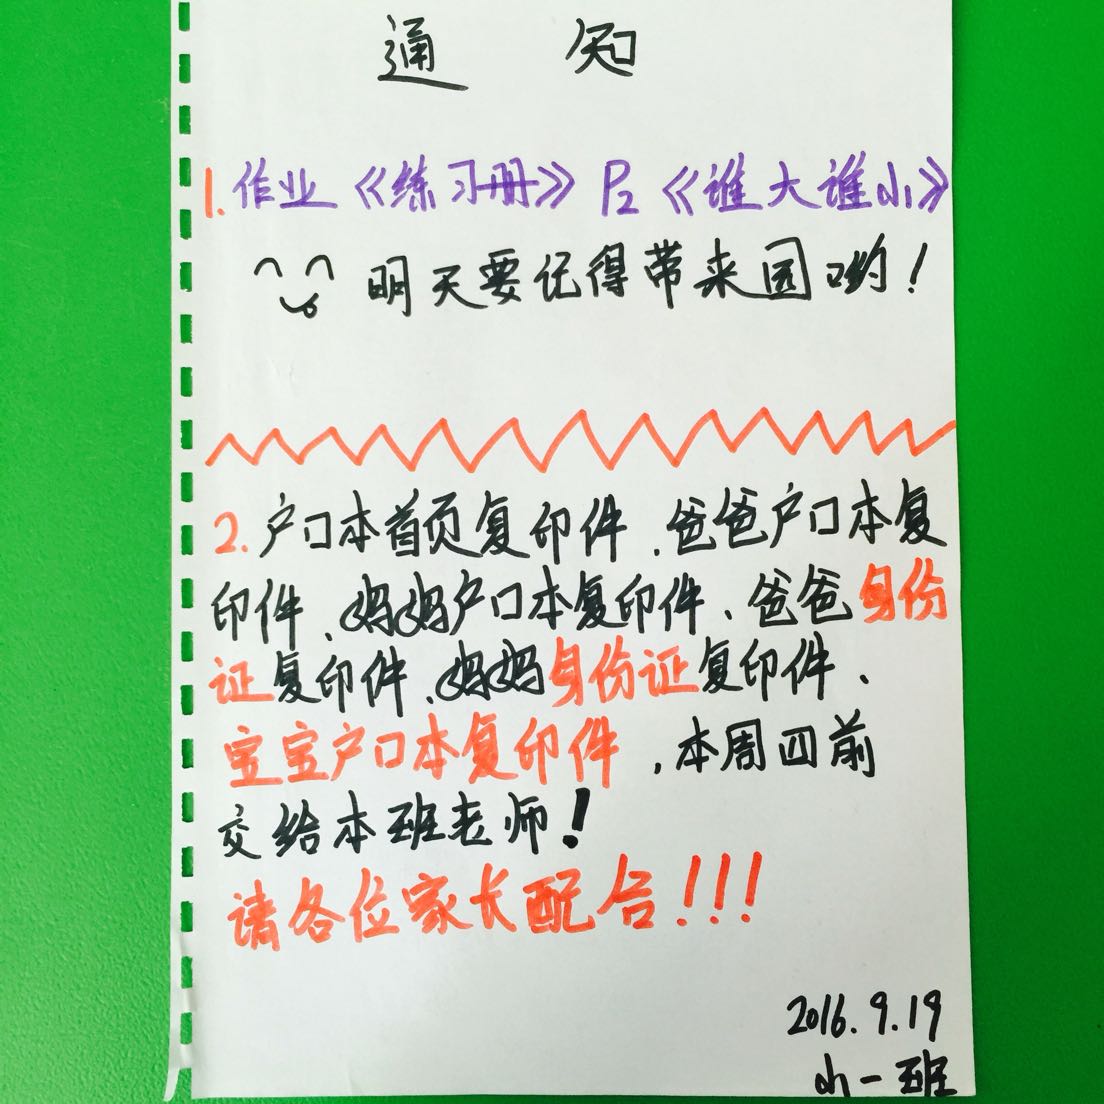 通 知
1.作业《练习册》P2《谁大谁小》
明天要记得带来园哟！
2.户口本首页复印件、爸爸户口本复
印件、妈妈户口本复印件、爸爸身份
证复印件、妈妈身份证复印件、
宝宝户口本复印件，本周四前
交给本班老师！
请各位家长配合！！！
2016.9.19
小一班